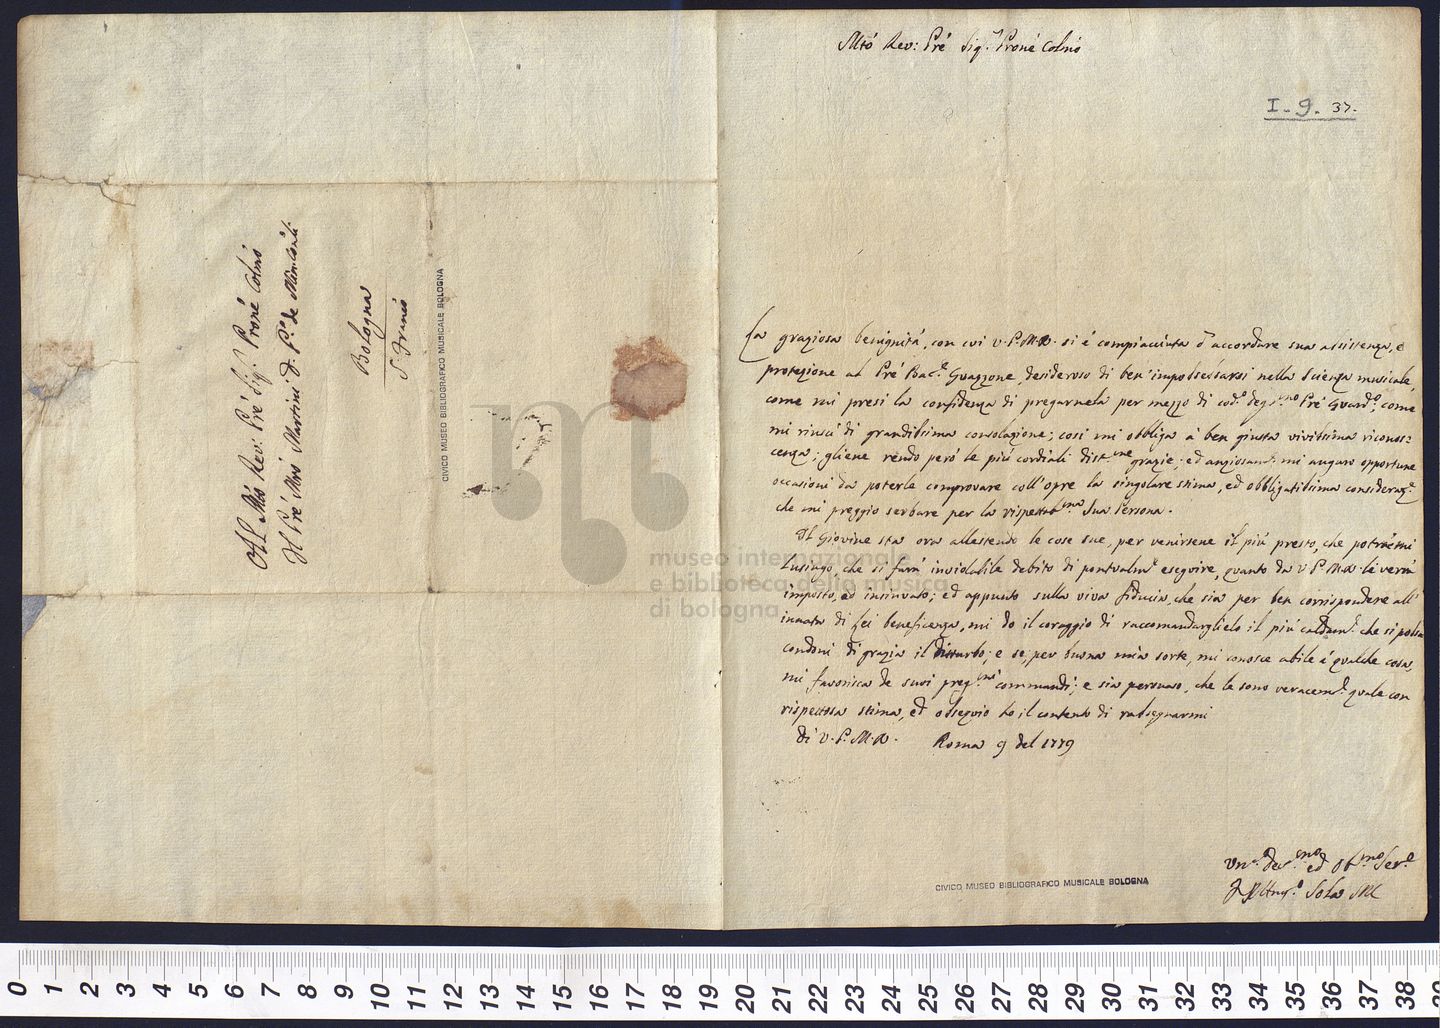 Al Mtó Rev: Pré Sig.r Prone Colmó
Il Pré Mro Martini D. P.e de Min: Con:li
Bologna
S. Franco
CIVICO MUSEO BIBLIOGRAFICO MUSICALE BOLOGNA
Mtó Rev: Pré Sig.r Prone Colmó
I - 9. 37.
La graziosa benignitá, con cui V. P. M. R. si é compiacciuta d'accordare sua assistenza, e
protezione al Pré Bac.e Guazzone, desideroso di ben' nella Scienza musicale,
come mi presi la confidenza di pregarnela per mezzo di cod.o deg.mo Pré Guard.o, come
mi riuscí di grandissima consolazione; cosi mi obbliga á ben giusta vivissima riconos=
cenza; gliene rendo peró le piú cordiali dist.me grazie; ed mi auguro opportune
occasioni da poterle comprovare coll'opre la singolare stima, ed obbligatissima consideraz.e
che mi preggio serbare per la rispettab.ma Sua Persona.
Il Giovine sta ora allestendo le cose sue, per venirsene il piú presto, che potrá: mi
lusingo, che si fará inviolabile debito di pontualm.e eseguire, quanto da V. P. M. R. le verrá
imposto, ed insinuato; ed appunto sulla viva fiducia, che sia per ben corrispondere all'
innata di Lei beneficenza, mi do il coraggio di raccomandarglielo il piú caldam.e che si possa
condoni di grazia il disturbo; e se, per buona mia sorte, mi conosce abile á qualche cosa,
mi favorisca de suoi preg.mi commandi; e sia persuaso, che le sono veracem.e quale con
rispettosa stima, ed ossequio ho il contento di rassegnarmi
Di V. P. M. R. Roma 9 del 1779
museo internazionale
e biblioteca della musica
di bologna
Um.o Dev.mo ed Ob.mo Ser.e
Sola
CIVICO MUSEO BIBLIOGRAFICO MUSICALE BOLOGNA
0 1 2 3 4 5 6 7 8 9 10 11 12 13 14 15 16 17 18 19 20 21 22 23 24 25 26 27 28 29 30 31 32 33 34 35 36 37 38